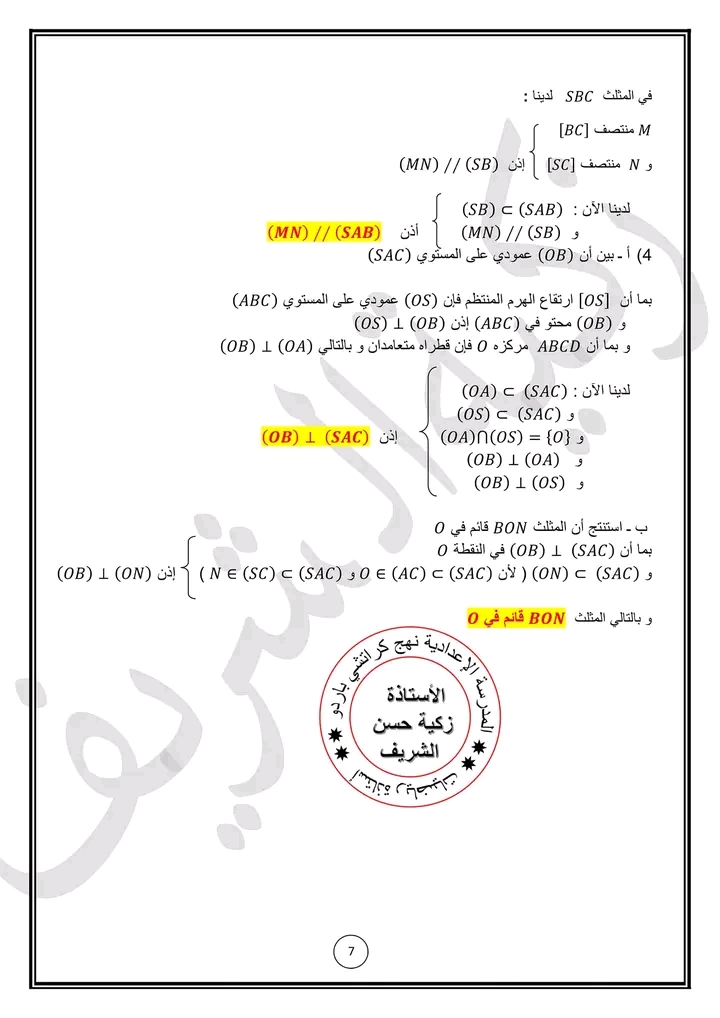 في المثلث SBC لدينا :
M منتصف [BC]
و N منتصف [SC] إذن (MN) // (SB)
لدينا الآن : (SB) ⊂ (SAB)
و (MN) // (SB) أذن (MN) // (SAB)
4) أ ـ بين أن (OB) عمودي على المستوي (SAC)
بما أن [OS] ارتفاع الهرم المنتظم فإن (OS) عمودي على المستوي (ABC)
و (OB) محتو في (ABC) إذن (OS) ⊥ (OB)
و بما أن ABCD مركزه O فإن قطراه متعامدان و بالتالي (OB) ⊥ (OA)
لدينا الآن : (OA) ⊂ (SAC)
و (OS) ⊂ (SAC)
و (OA)∩(OS) = {O} إذن (OB) ⊥ (SAC)
و (OB) ⊥ (OA)
و (OB) ⊥ (OS)
ب ـ استنتج أن المثلث BON قائم في O
بما أن (OB) ⊥ (SAC) في النقطة O
و (ON) ⊂ (SAC) ( لأن O ∈ (AC) ⊂ (SAC) و N ∈ (SC) ⊂ (SAC) ) إذن (OB) ⊥ (ON)
و بالتالي المثلث BON قائم في O
المدرسة الإعدادية نهج كراتشي باردو
الأستاذة
زكية حسن
الشريف
أستاذة رياضيات
زكية الشريف
7